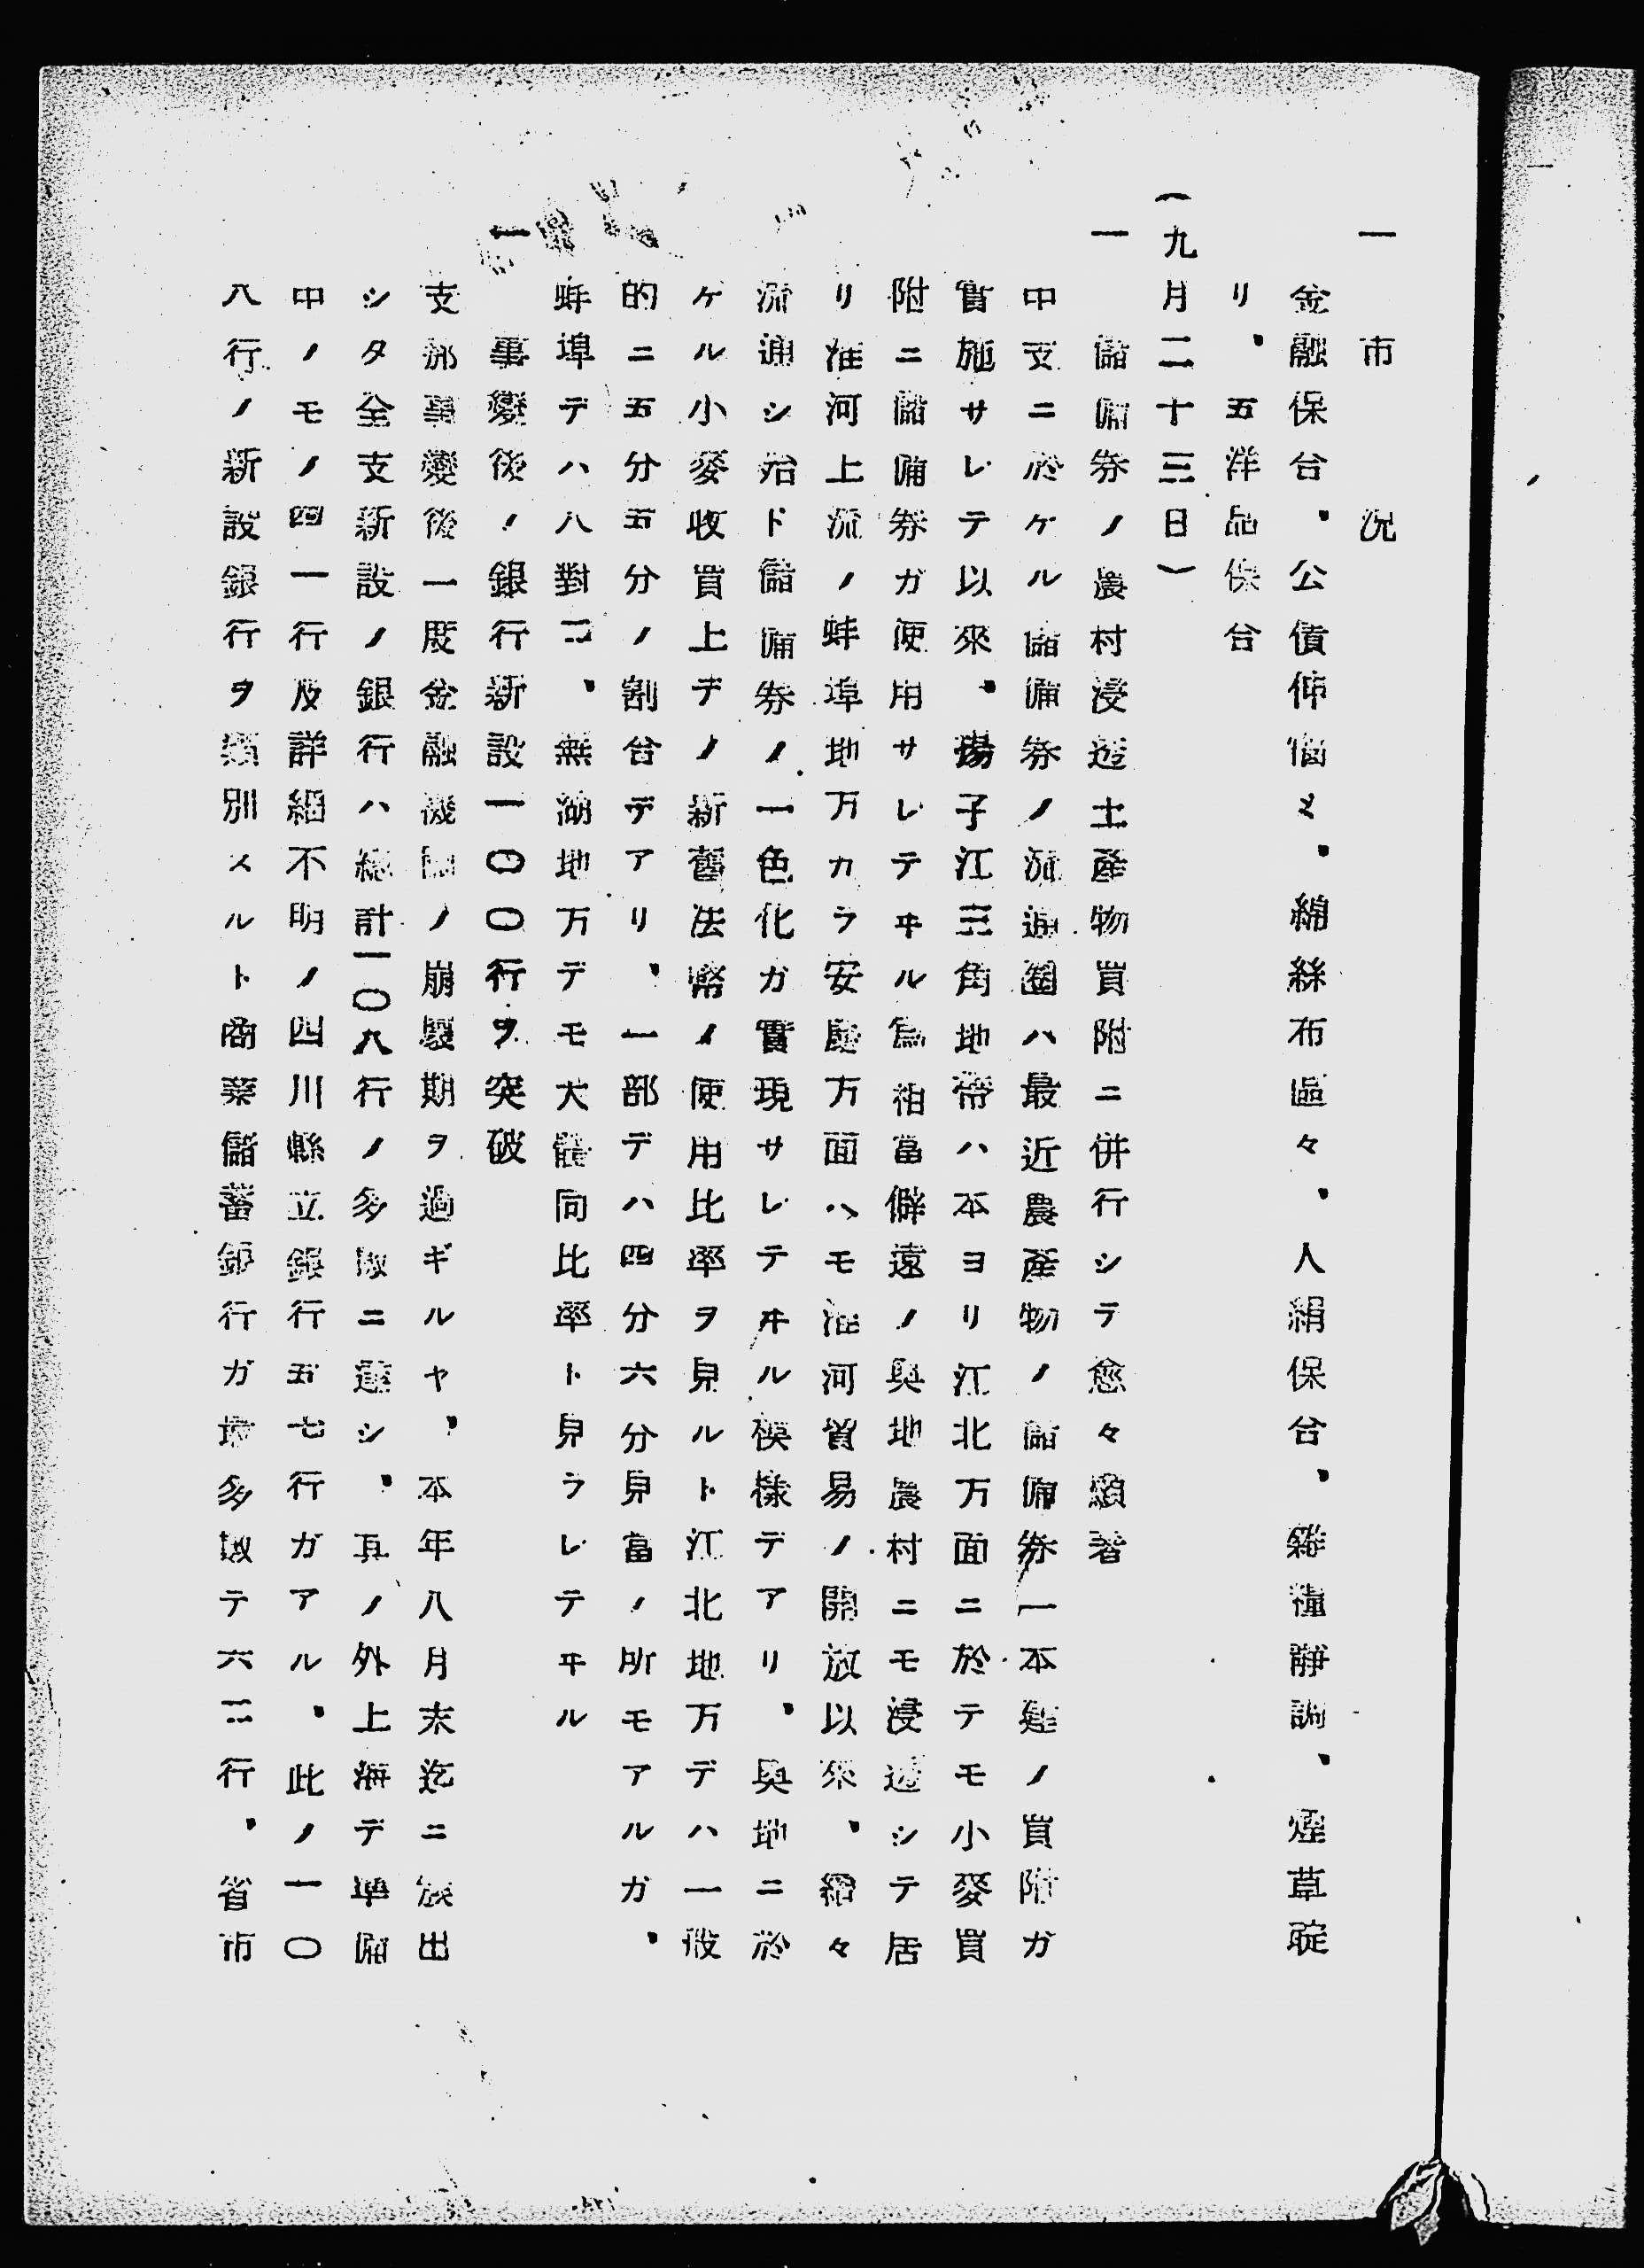 一 市況
金融保合、公債伸悩ミ、綿絲布區々、人絹保合、雜糧靜調、煙草碇
リ、五洋品保合
(九月二十三日)
一 儲備券ノ農村浸透土産物買附ニ併行シテ愈々顯著
中支ニ於ケル儲備券ノ流通圈ハ最近農産物ノ儲備券一本建ノ買附ガ
實施サレテ以來、揚子江三角地帶ハ本ヨリ江北方面ニ於テモ小麥買
附ニ儲備券ガ使用サレテヰル爲相當僻遠ノ奥地農村ニモ浸透シテ居
リ淮河上流ノ蚌埠地方カラ安慶方面ヘモ淮河貿易ノ開放以來、續々
流通シ殆ド儲備券ノ一色化ガ實現サレテヰル模樣デアリ、奥地ニ於
ケル小麥收買上デノ新舊法幣ノ使用比率ヲ見ルト江北地方デハ一般
的ニ五分五分ノ割合デアリ、一部デハ四分六分見當ノ所モアルガ、
蚌埠デハ八對二、無湖地方デモ大體同比率ト見ラレテヰル
一 事變後ノ銀行新設一〇〇行ヲ突破
支那事變後一度金融機關ノ崩裂期ヲ過ギルヤ、本年八月末迄ニ簇出
シタ全支新設ノ銀行ハ總計一〇八行ノ多數ニ達シ、其ノ外上海デ準備
中ノモノ四一行及詳細不明ノ四川縣立銀行五七行ガアル、此ノ一〇
八行ノ新設銀行ヲ類別スルト商業儲蓄銀行ガ最多數テ六二行、省市